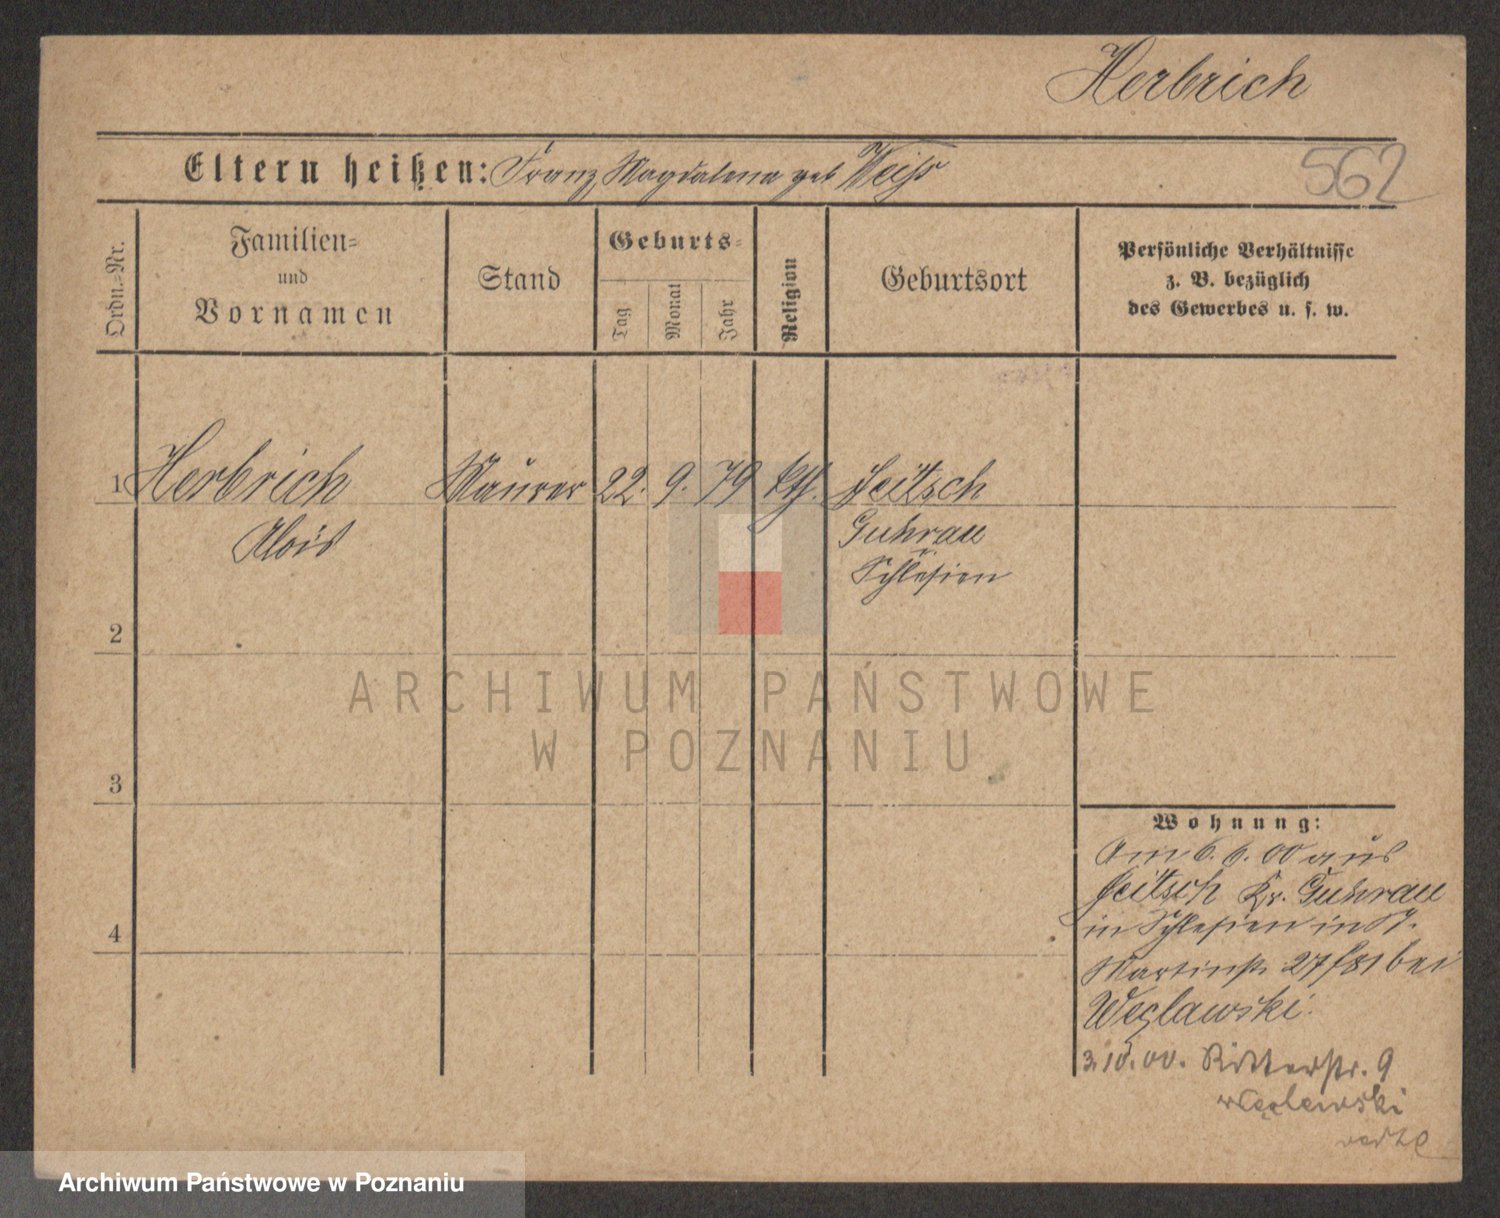 Herbrich
Eltern heißen: Franz Magdalena geb Weiß
562
Ordn.-Nr.
Familien-
und
Vornamen
Stand
Geburts-
Tag
Monat
Jahr
Religion
Geburtsort
Persönliche Verhältnisse
z. B. bezüglich
des Gewerbes u. s. w.
1 Herbrich Maurer 22. 9. 79 kth. Seitsch
Alois Guhrau
Schlesien
2
ARCHIWUM PAŃSTWOWE
W POZNANIU
3
Wohnung:
Am 6. 6. 00 aus
Seitsch Kr. Guhrau
in Schlesien in St.
4
Martinstr. 27/81 bei
Węclawski.
3.10.00. Ritterstr. 9
Węclewski
Archiwum Państwowe w Poznaniu